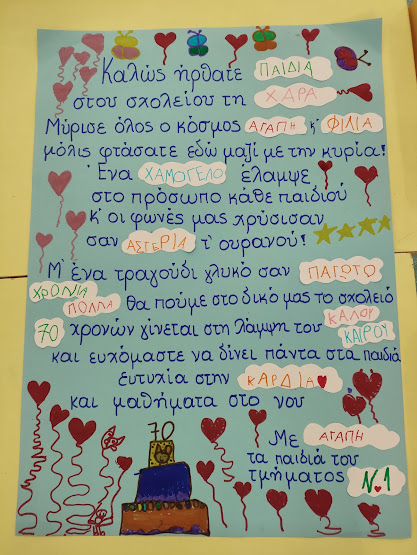 Καλώς ήρθατε ΠΑΙΔΙΑ
στου σχολείου τη ΧΑΡΑ
Μύρισε όλος ο κόσμος ΑΓΑΠΗ κ' ΦΙΛΙΑ
μόλις φτάσατε εδώ μαζί με την κυρία!
Ένα ΧΑΜΟΓΕΛΟ έλαμψε
στο πρόσωπο κάθε παιδιού
κ' οι φωνές μας χρύσισαν
σαν ΑΣΤΕΡΙΑ τ' ουρανού!
Μ' ένα τραγούδι γλυκό σαν ΠΑΓΩΤΟ
ΧΡΟΝΙΑ ΠΟΛΛΑ θα πούμε στο δικό μας το σχολειό
70 χρονών γίνεται στη λάμψη του ΚΑΛΟΥ ΚΑΙΡΟΥ
και ευχόμαστε να δίνει πάντα στα παιδιά
ευτυχία στην ΚΑΡΔΙΑ
και μαθήματα στο νου
70
Με ΑΓΑΠΗ
τα παιδιά του
τμήματος Ν.1